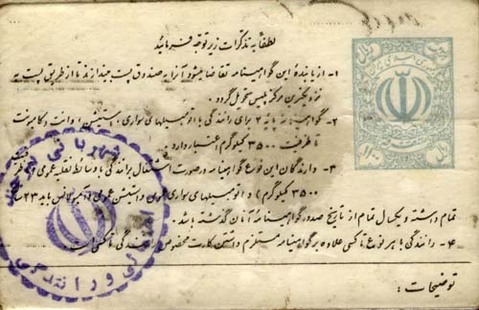 لطفاً به تذکرات زیر توجه فرمائید
۱- از یابنده این گواهینامه تقاضا میشود آنرا به صندوق پست بیندازند تا از طریق پست به
نزدیکترین مرکز پلیس تحویل گردد.
۲- گواهینامه پایه ۲ برای رانندگی با اتومبیلهای سواری، استیشن، وانت و کامیونت
تا ظرفیت ۳۵۰۰ کیلوگرم اعتبار دارد.
۳- دارندگان این نوع گواهینامه در صورت اشتغال برانندگی با وسائط نقلیه عمومی (تا ظرفیت
۳۵۰۰ کیلوگرم) و اتومبیلهای سواری و استیشن عمومی و آمبولانس باید ۲۳ سال
تمام داشته و یکسال تمام از تاریخ صدور گواهینامه آنان گذشته باشد.
۴- رانندگی با هر نوع تاکسی علاوه بر گواهینامه مستلزم داشتن کارت مخصوص رانندگی تاکسی است.
توضیحات:
ریال
۱۰۰
شهربانی
و رانندگی